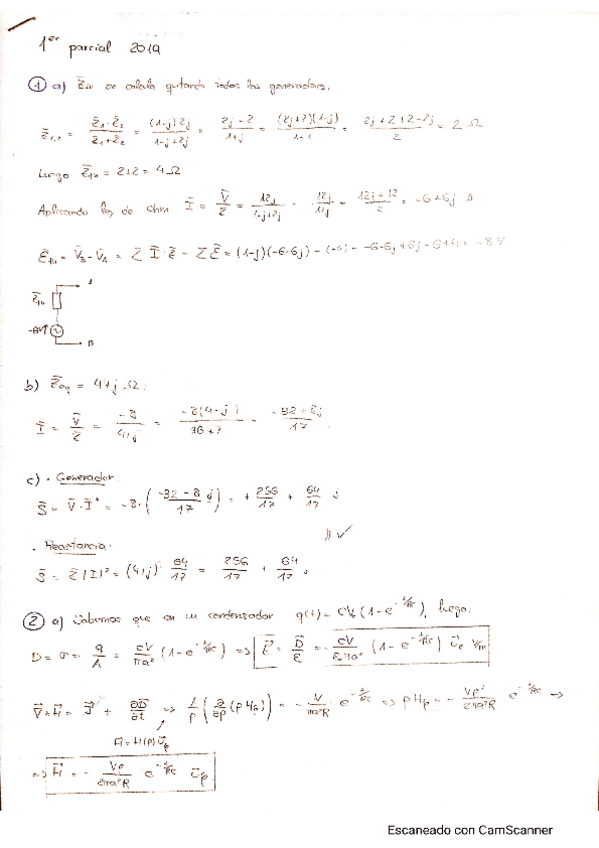 1er parcial 2019
① a) Z̄th se calcula quitando todos los generadores.
Z̄1,2 = Z̄1·Z̄2 / Z̄1+Z̄2 = (1-j)2j / 1-j+2j = 2j+2 / 1+j = (2j+2)(1-j) / 1+1 = 2j+2+2-2j / 2 = 2 Ω
Luego Z̄th = 2+2 = 4 Ω
Aplicando ley de ohm Ī = V̄ / Z̄ = 12j / 1-j+2j = 12j / 1+j = 12j+12 / 2 =
Ēth = V̄B - V̄A = - 8 V
A
Z̄th
-8V
B
b) Z̄eq = 4+j Ω.
Ī = V̄ / Z̄ = -8 / 4+j = -8(4-j) / = -32+8j / 17
c) · Generador
S̄ = V̄·Ī* = -8·( -32-8j / 17 ) = + 256/17 + 64/17 j
· Reactancia.
S̄ = Z̄|I|² = (4+j) 64/17 = 256/17 + 64/17 j
② a) Sabemos que en un condensador q(t) = CV (1-e^-t/RC), luego.
D = σ = q/A = CV/πa² (1-e^-t/RC) => Ē = D̄/ε = - CV/ε₀πa² (1-e^-t/RC) V/m
∇×H̄ = J̄ + ∂D̄/∂t => 1/ρ ( ∂/∂ρ (ρHφ) ) = - V/πa²R e^-t/RC => ρHφ = - Vρ²/2πa²R e^-t/RC =>
H̄ = H(ρ)ūφ
=> H̄ = - Vρ/2πa²R e^-t/RC ūφ
Escaneado con CamScanner